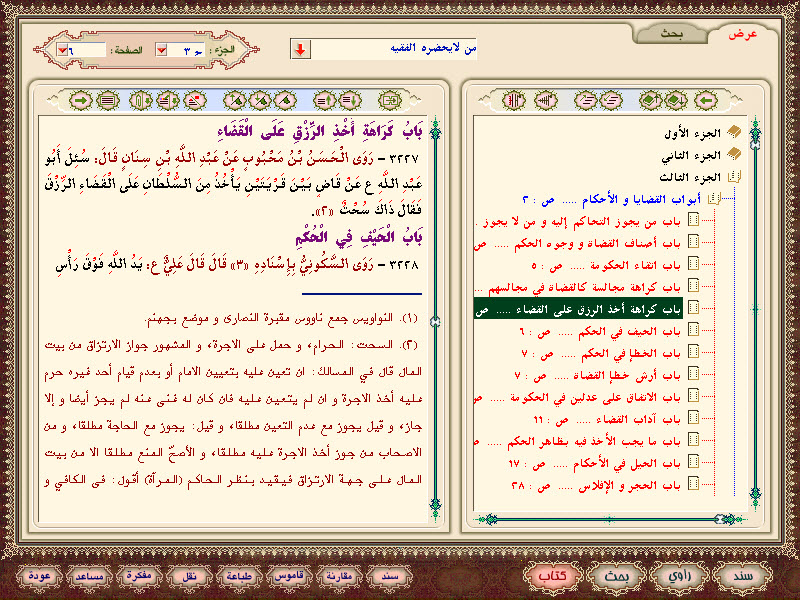 عرض
بحث
من لايحضره الفقيه
الجزء :
ج ٣
الصفحة :
٦
الجزء الأول
الجزء الثاني
الجزء الثالث
أبواب القضايا و الأحكام ..... ص : ٢
باب من يجوز التحاكم إليه و من لا يجوز .
باب أصناف القضاة و وجوه الحكم ..... ص
باب اتقاء الحكومة ..... ص : ٥
باب كراهة مجالسة كالقضاة في مجالسهم ...
باب كراهة أخذ الرزق على القضاء ..... ص
باب الحيف في الحكم ..... ص : ٦
باب الخطإ في الحكم ..... ص : ٧
باب أرش خطإ القضاة ..... ص : ٧
باب الاتفاق على عدلين في الحكومة ..... ص
باب آداب القضاء ..... ص : ١١
باب ما يجب الأخذ فيه بظاهر الحكم ..... ص
باب الحيل في الأحكام ..... ص : ١٧
باب الحجر و الإفلاس ..... ص : ٢٨
بَابُ كَرَاهَةِ أَخْذِ الرِّزْقِ عَلَى الْقَضَاءِ
٣٢٢٧ - رَوَى الْحَسَنُ بْنُ مَحْبُوبٍ عَنْ عَبْدِ اللَّهِ بْنِ سِنَانٍ قَالَ: سُئِلَ أَبُو
عَبْدِ اللَّهِ ع عَنْ قَاضٍ بَيْنَ قَرْيَتَيْنِ يَأْخُذُ مِنَ السُّلْطَانِ عَلَى الْقَضَاءِ الرِّزْقَ
فَقَالَ ذَاكَ سُحْتٌ «٢».
بَابُ الْحَيْفِ فِي الْحُكْمِ
٣٢٢٨ - رَوَى السَّكُونِيُّ بِإِسْنَادِهِ «٣» قَالَ قَالَ عَلِيٌّ ع: يَدُ اللَّهِ فَوْقَ رَأْسِ
(١). النواويس جمع ناووس مقبرة النصارى و موضع بجهنم.
(٢). السحت: الحرام، و حمل على الاجرة، و المشهور جواز الارتزاق من بيت
المال قال في المسالك: ان تعين عليه بتعيين الامام أو بعدم قيام أحد غيره حرم
عليه أخذ الاجرة و ان لم يتعين عليه فان كان له غنى عنه لم يجز أيضا و إلا
جاز، و قيل يجوز مع عدم التعين مطلقا، و قيل: يجوز مع الحاجة مطلقا، و من
الاصحاب من جوز أخذ الاجرة عليه مطلقا، و الأصحّ المنع مطلقا الا من بيت
المال على جهة الارتزاق فيقيد بنظر الحاكم (المرآة) أقول: في الكافي و
سند
راوي
بحث
كتاب
سند
مقارنة
قاموس
طباعة
نقل
مفكرة
مساعد
عودة